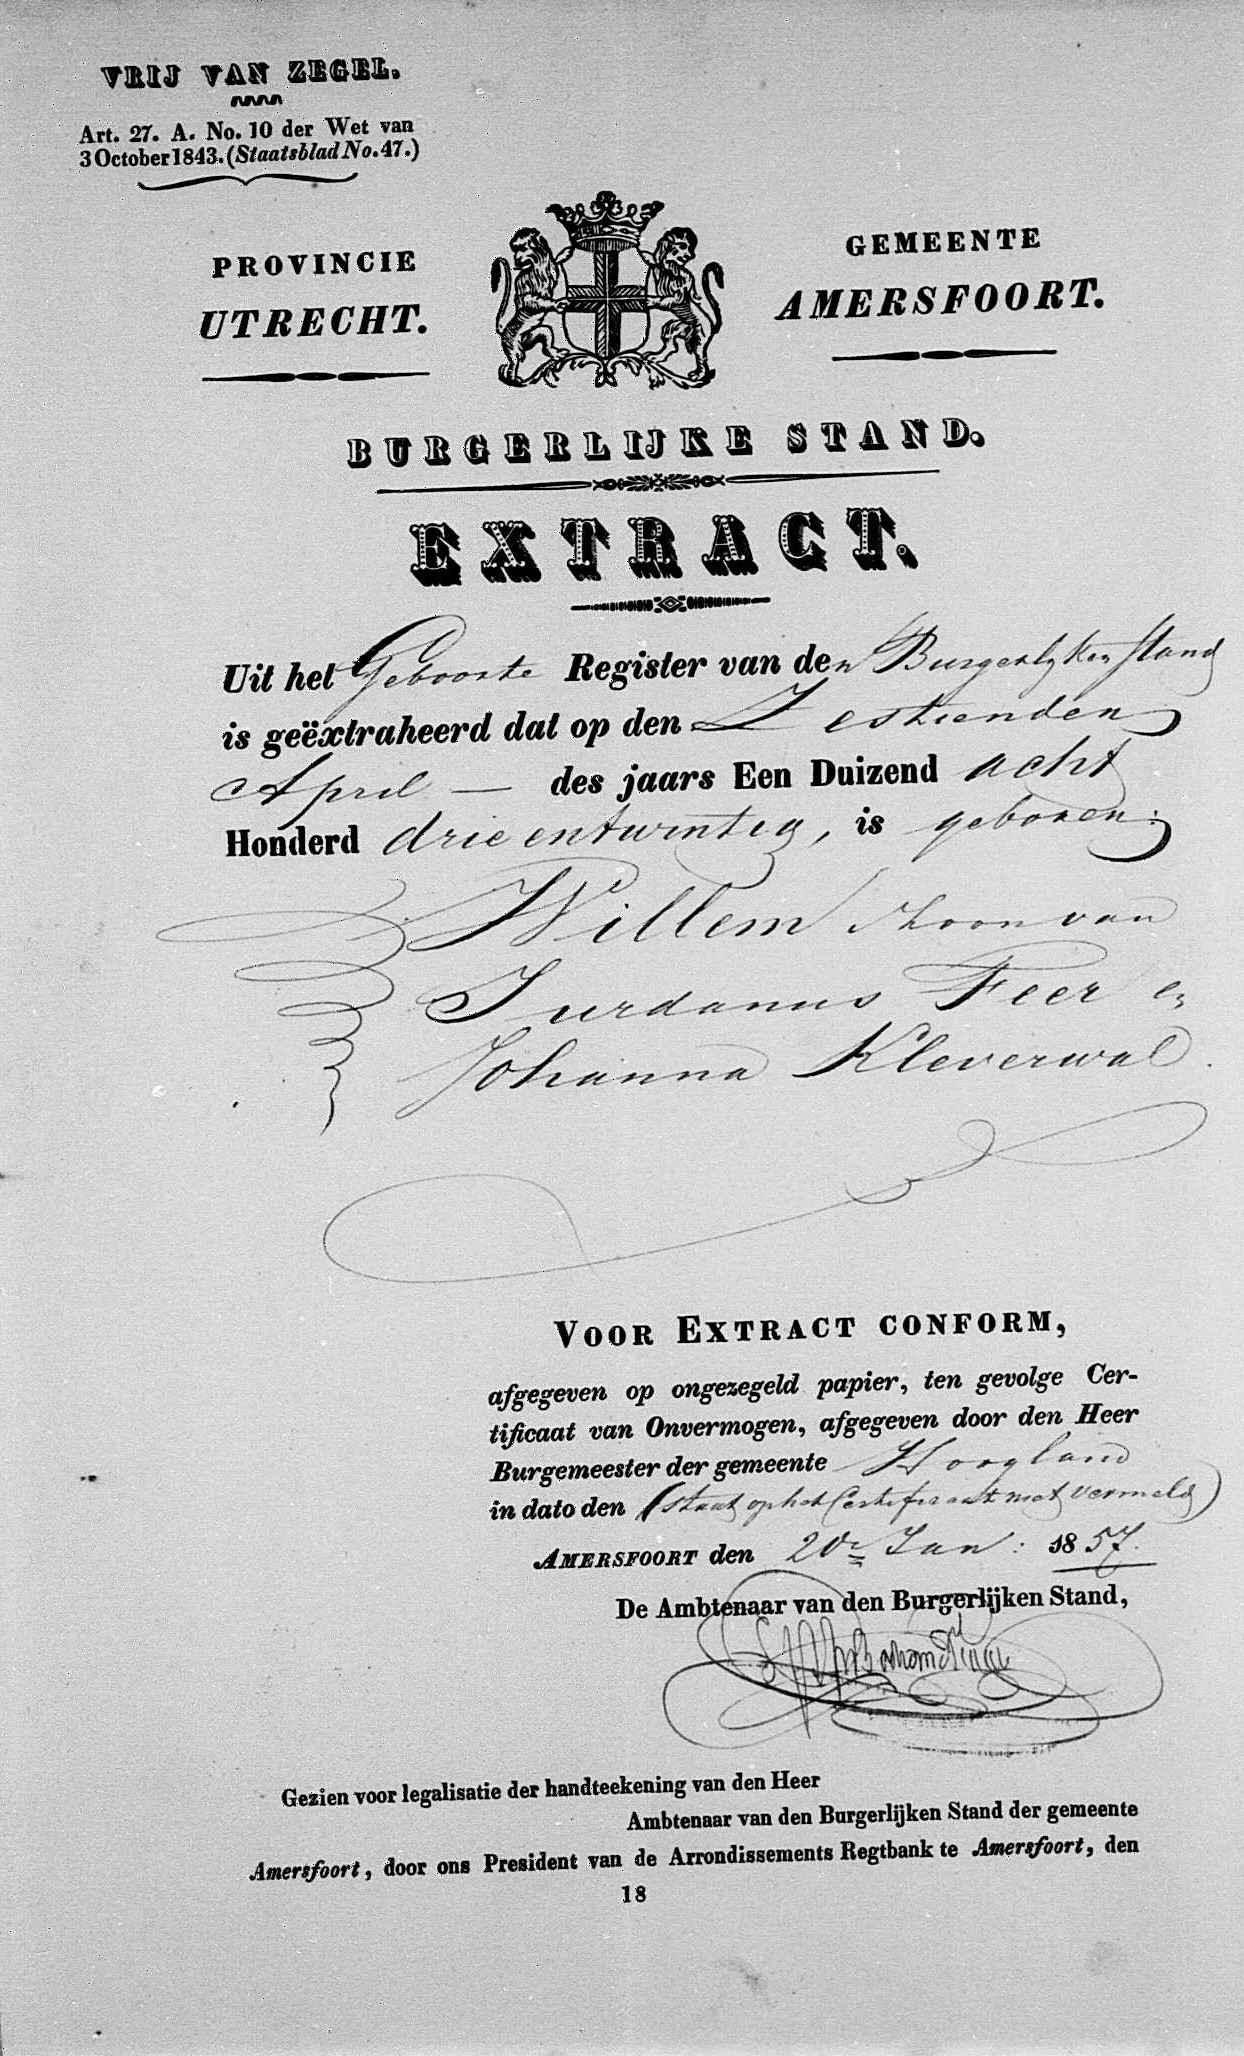 VRIJ VAN ZEGEL.
Art. 27. A. No. 10 der Wet van
3 October 1843. (Staatsblad No. 47.)
PROVINCIE
UTRECHT.
GEMEENTE
AMERSFOORT.
BURGERLIJKE STAND.
EXTRACT.
Uit het Geboorte Register van den Burgerlyken Stand
is geëxtraheerd dat op den Zestienden
April — des jaars Een Duizend acht
Honderd drie en twintig, is geboren:
Willem zhoon van
Jurdanus Feer en
Johanna Kleverwal.
VOOR EXTRACT CONFORM,
afgegeven op ongezegeld papier, ten gevolge Cer-
tificaat van Onvermogen, afgegeven door den Heer
Burgemeester der gemeente Hoogland
in dato den (staat op het Certificaat niet vermeld)
AMERSFOORT den 20e Jan: 1857.
De Ambtenaar van den Burgerlijken Stand,
Gezien voor legalisatie der handteekening van den Heer
Ambtenaar van den Burgerlijken Stand der gemeente
Amersfoort, door ons President van de Arrondissements Regtbank te Amersfoort, den
18